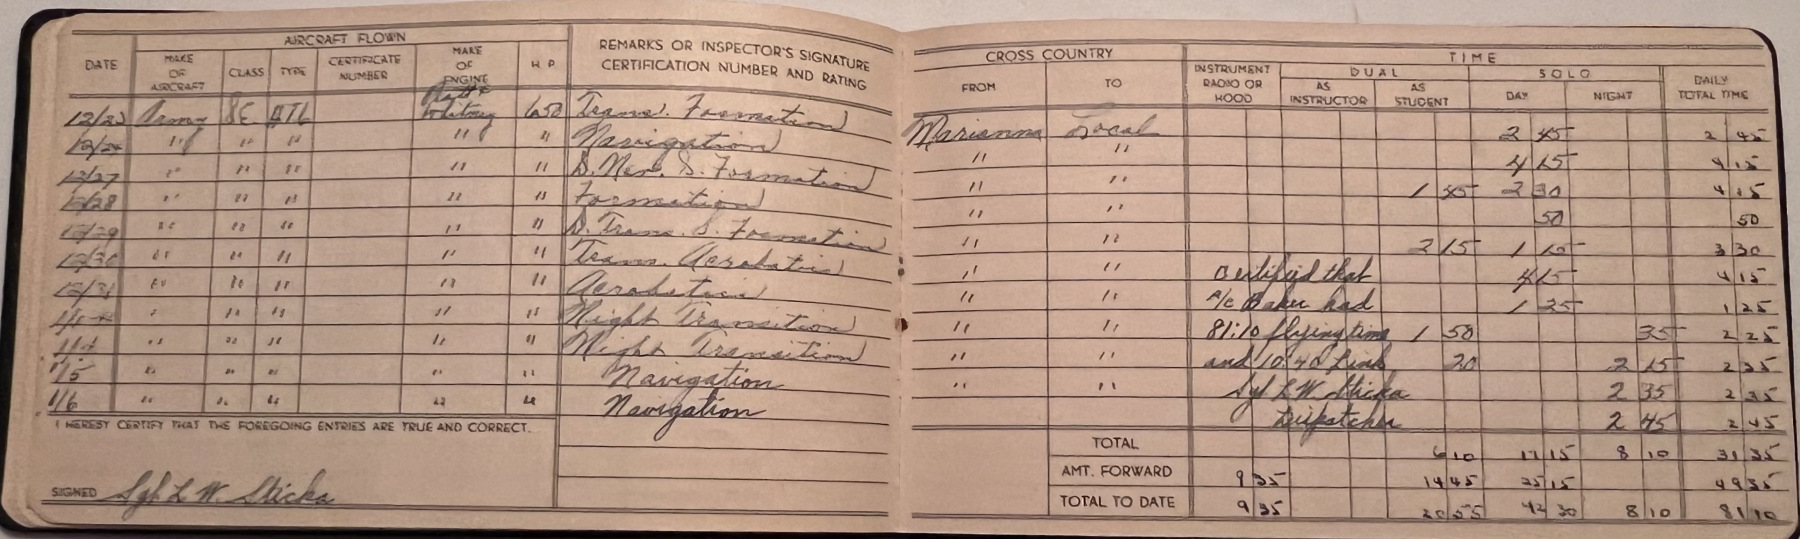 AIRCRAFT FLOWN
DATE MAKE OF AIRCRAFT CLASS TYPE CERTIFICATE NUMBER MAKE OF ENGINE H. P. REMARKS OR INSPECTOR'S SIGNATURE CERTIFICATION NUMBER AND RATING
12/23 Army SE Pratt & Whitney 650 Trans. Formation
12/24 " " " " " Navigation
12/27 " " " " " Formation
12/28 " " " " " Formation
12/29 " " " " " D. Trans. S. Formation
12/30 " " " " " Trans. Acrobatics
12/31 " " " " " Acrobatics
" " " " " Night Transition
1/4 " " " " " Night Transition
1/5 " " " " " Navigation
1/6 " " " " " Navigation
I HEREBY CERTIFY THAT THE FOREGOING ENTRIES ARE TRUE AND CORRECT.
SIGNED Sgt L W. Sticka
CROSS COUNTRY TIME
FROM TO INSTRUMENT RADIO OR HOOD DUAL AS INSTRUCTOR AS STUDENT SOLO DAY NIGHT DAILY TOTAL TIME
Marianna Local 2 45 2 45
" " 4 15 4 15
" " 1 45 2 30 4 15
" " 50 50
" " 2 15 1 15 3 30
" " Certified that 4 15 4 15
" " A/C Baker had 1 25 1 25
" " 81:10 flying time 1 50 35 2 25
" " and 10:40 Link 20 2 15 2 35
" " Sgt L W Sticka 2 35 2 35
Dispatcher 2 45 2 45
TOTAL 6 10 17 15 8 10 31 35
AMT. FORWARD 9 35 14 45 25 15 49 35
TOTAL TO DATE 9 35 20 55 42 30 8 10 81 10